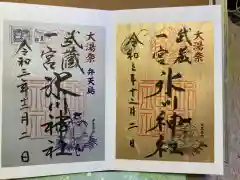 大湯祭
弁天島
武蔵
一宮
氷川神社
令和三年十二月二日
大湯祭
武蔵
一宮
氷川神社
令和三年十二月二日